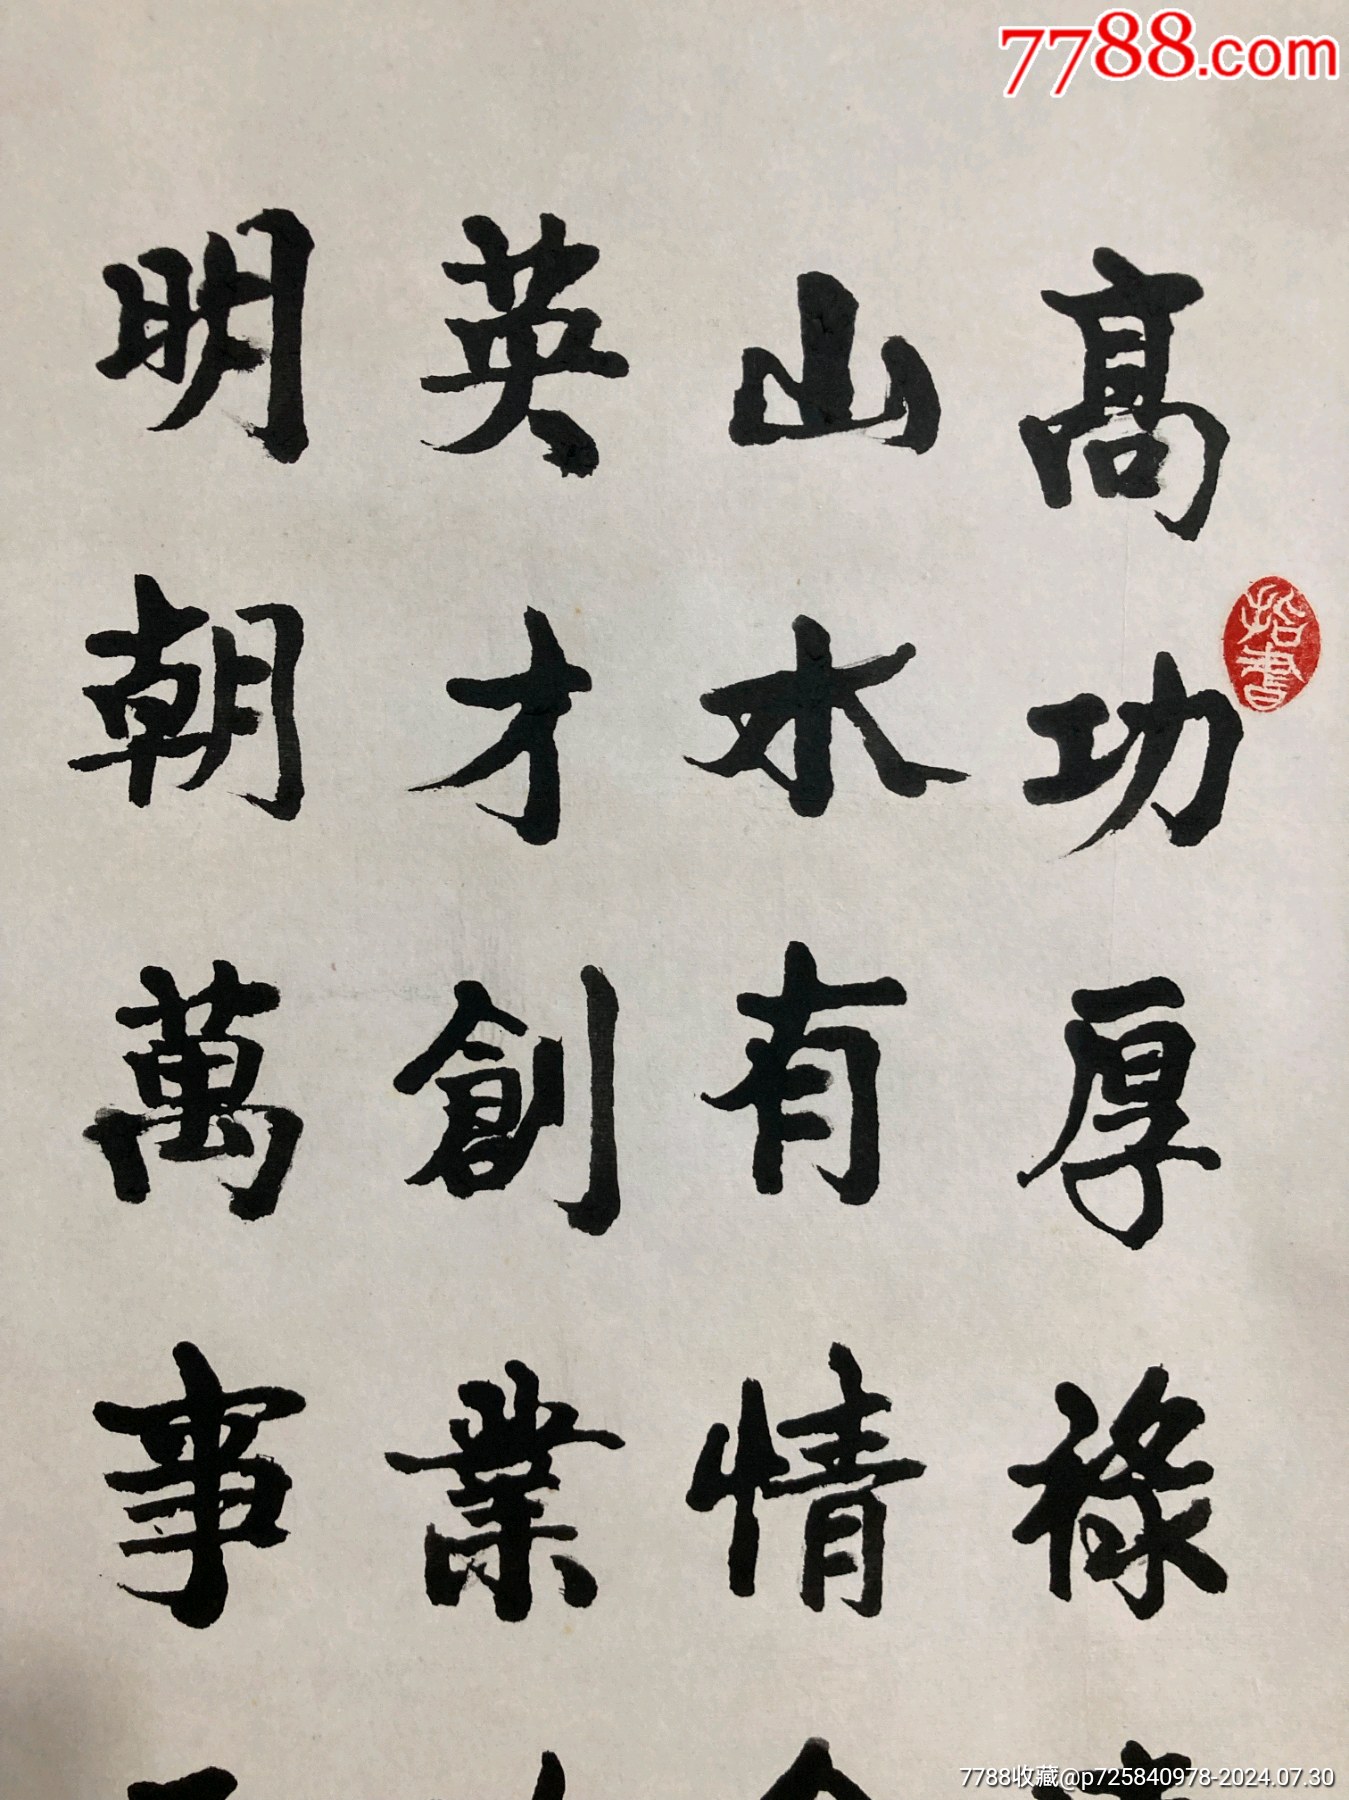 7788.com
高功厚祿
山水有情
英才創業
明朝萬事
指書
7788收藏@p725840978-2024.07.30